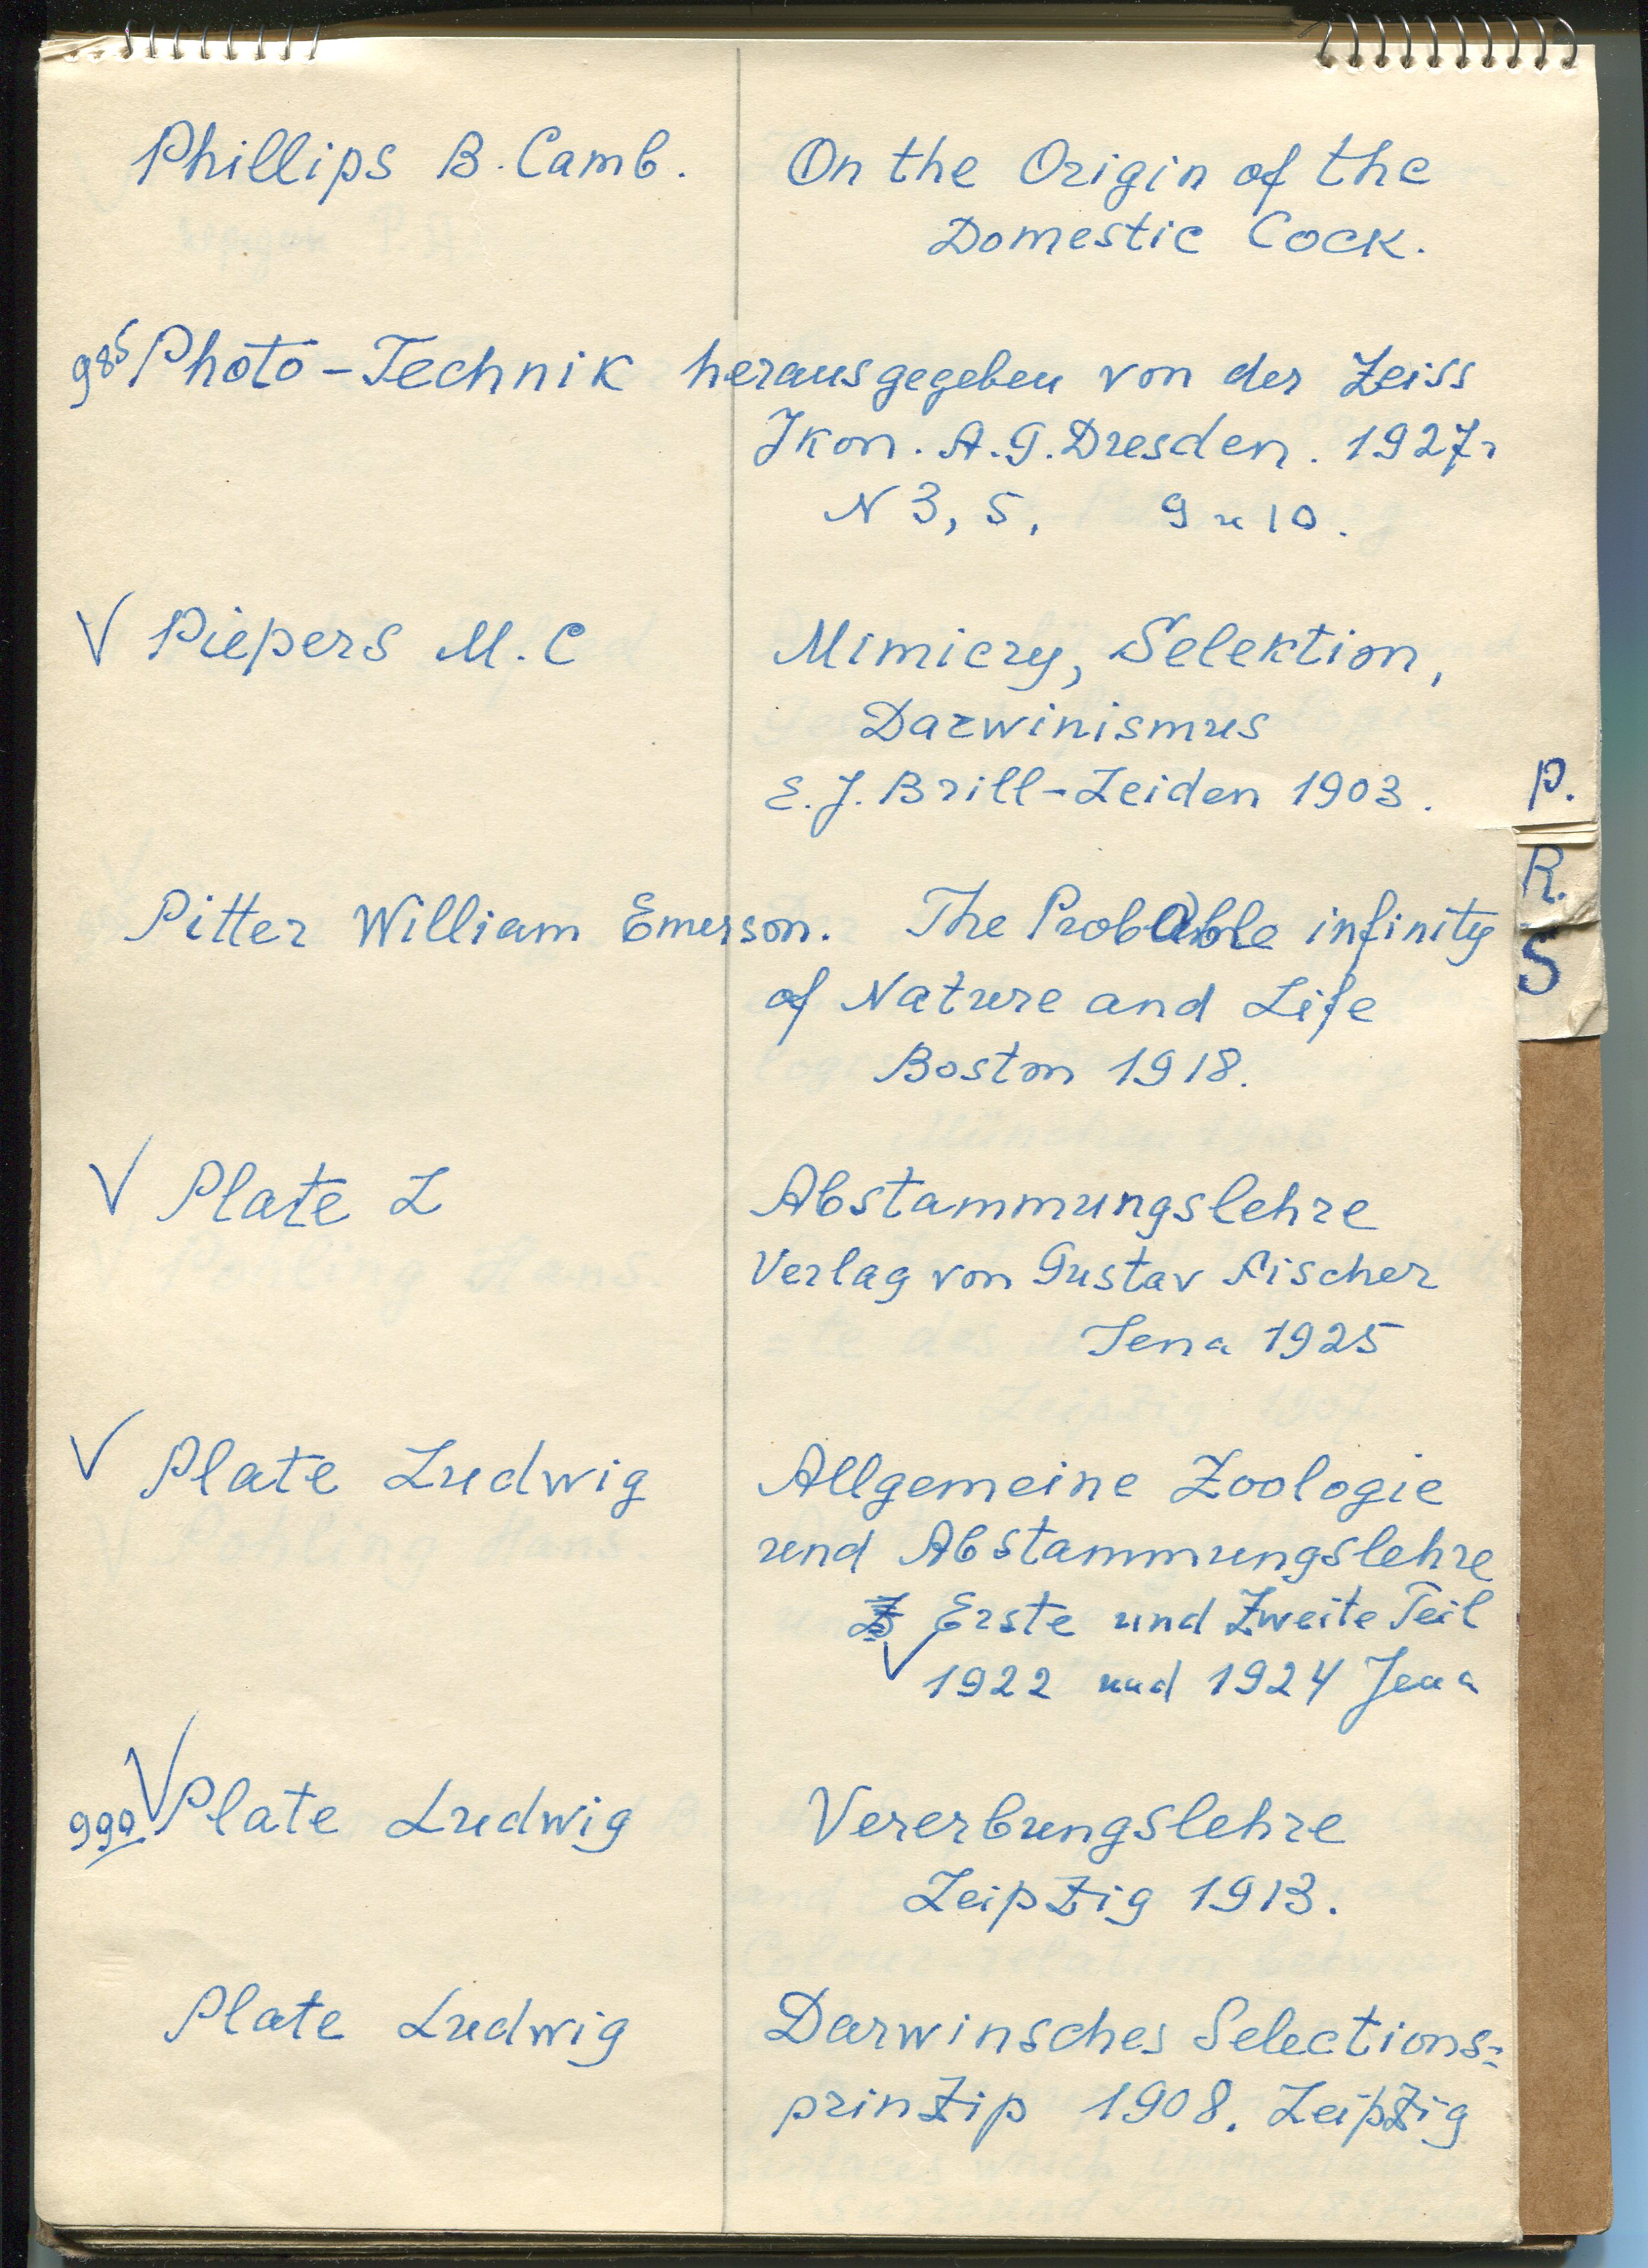 Phillips B. Camb. On the Origin of the
Domestic Cock.
985 Photo-Technik herausgegeben von der Zeiss
Jkon. A.G. Dresden. 1927г
N 3, 5, 9 и 10.
V Piepers M.C Mimicry, Selektion,
Darwinismus
E.J. Brill-Leiden 1903.
P.
R.
S
Pitter William Emerson. The Probable infinity
of Nature and Life
Boston 1918.
V Plate L Abstammungslehre
Verlag von Gustav Fischer
Jena 1925
V Plate Ludwig Allgemeine Zoologie
und Abstammungslehre
Erste und Zweite Teil
V 1922 und 1924 Jena
V 999 Plate Ludwig Vererbungslehre
Leipzig 1913.
Plate Ludwig Darwinsches Selections=
prinzip 1908. Leipzig